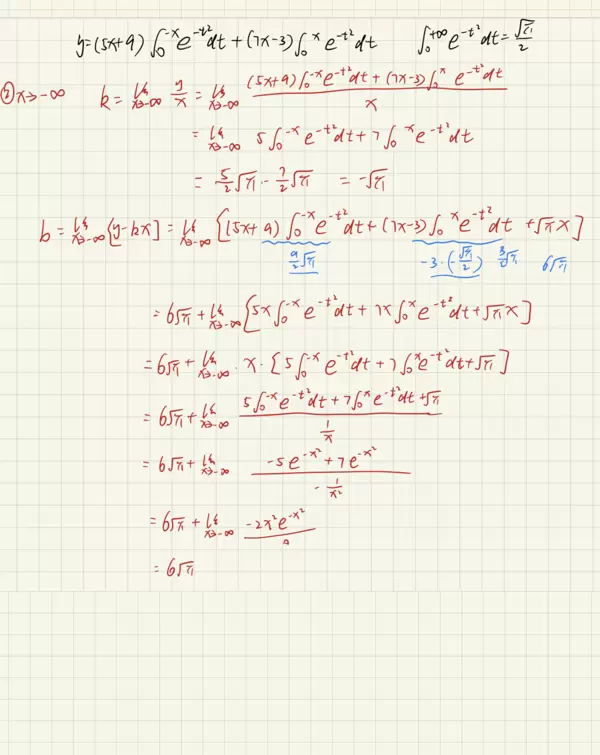 y=(5x+9)∫₀^{-x}e^{-t²}dt+(7x-3)∫₀^{x}e^{-t²}dt ∫₀^{+∞}e^{-t²}dt=√π/2
②x→-∞ k=lim_{x→-∞} y/x=lim_{x→-∞} ((5x+9)∫₀^{-x}e^{-t²}dt+(7x-3)∫₀^{x}e^{-t²}dt)/x
=lim_{x→-∞} 5∫₀^{-x}e^{-t²}dt+7∫₀^{x}e^{-t²}dt
=5/2√π-7/2√π =-√π
b=lim_{x→-∞}[y-kx]=lim_{x→-∞}[(5x+9)∫₀^{-x}e^{-t²}dt+(7x-3)∫₀^{x}e^{-t²}dt+√πx]
9/2√π -3·(-√π/2) 3/2√π 6√π
=6√π+lim_{x→-∞}[5x∫₀^{-x}e^{-t²}dt+7x∫₀^{x}e^{-t²}dt+√πx]
=6√π+lim_{x→-∞}·x·[5∫₀^{-x}e^{-t²}dt+7∫₀^{x}e^{-t²}dt+√π]
=6√π+lim_{x→-∞} (5∫₀^{-x}e^{-t²}dt+7∫₀^{x}e^{-t²}dt+√π)/(1/x)
=6√π+lim_{x→-∞} (-5e^{-x²}+7e^{-x²})/(-1/x²)
=6√π+lim_{x→-∞} -2x²e^{-x²}
=6√π